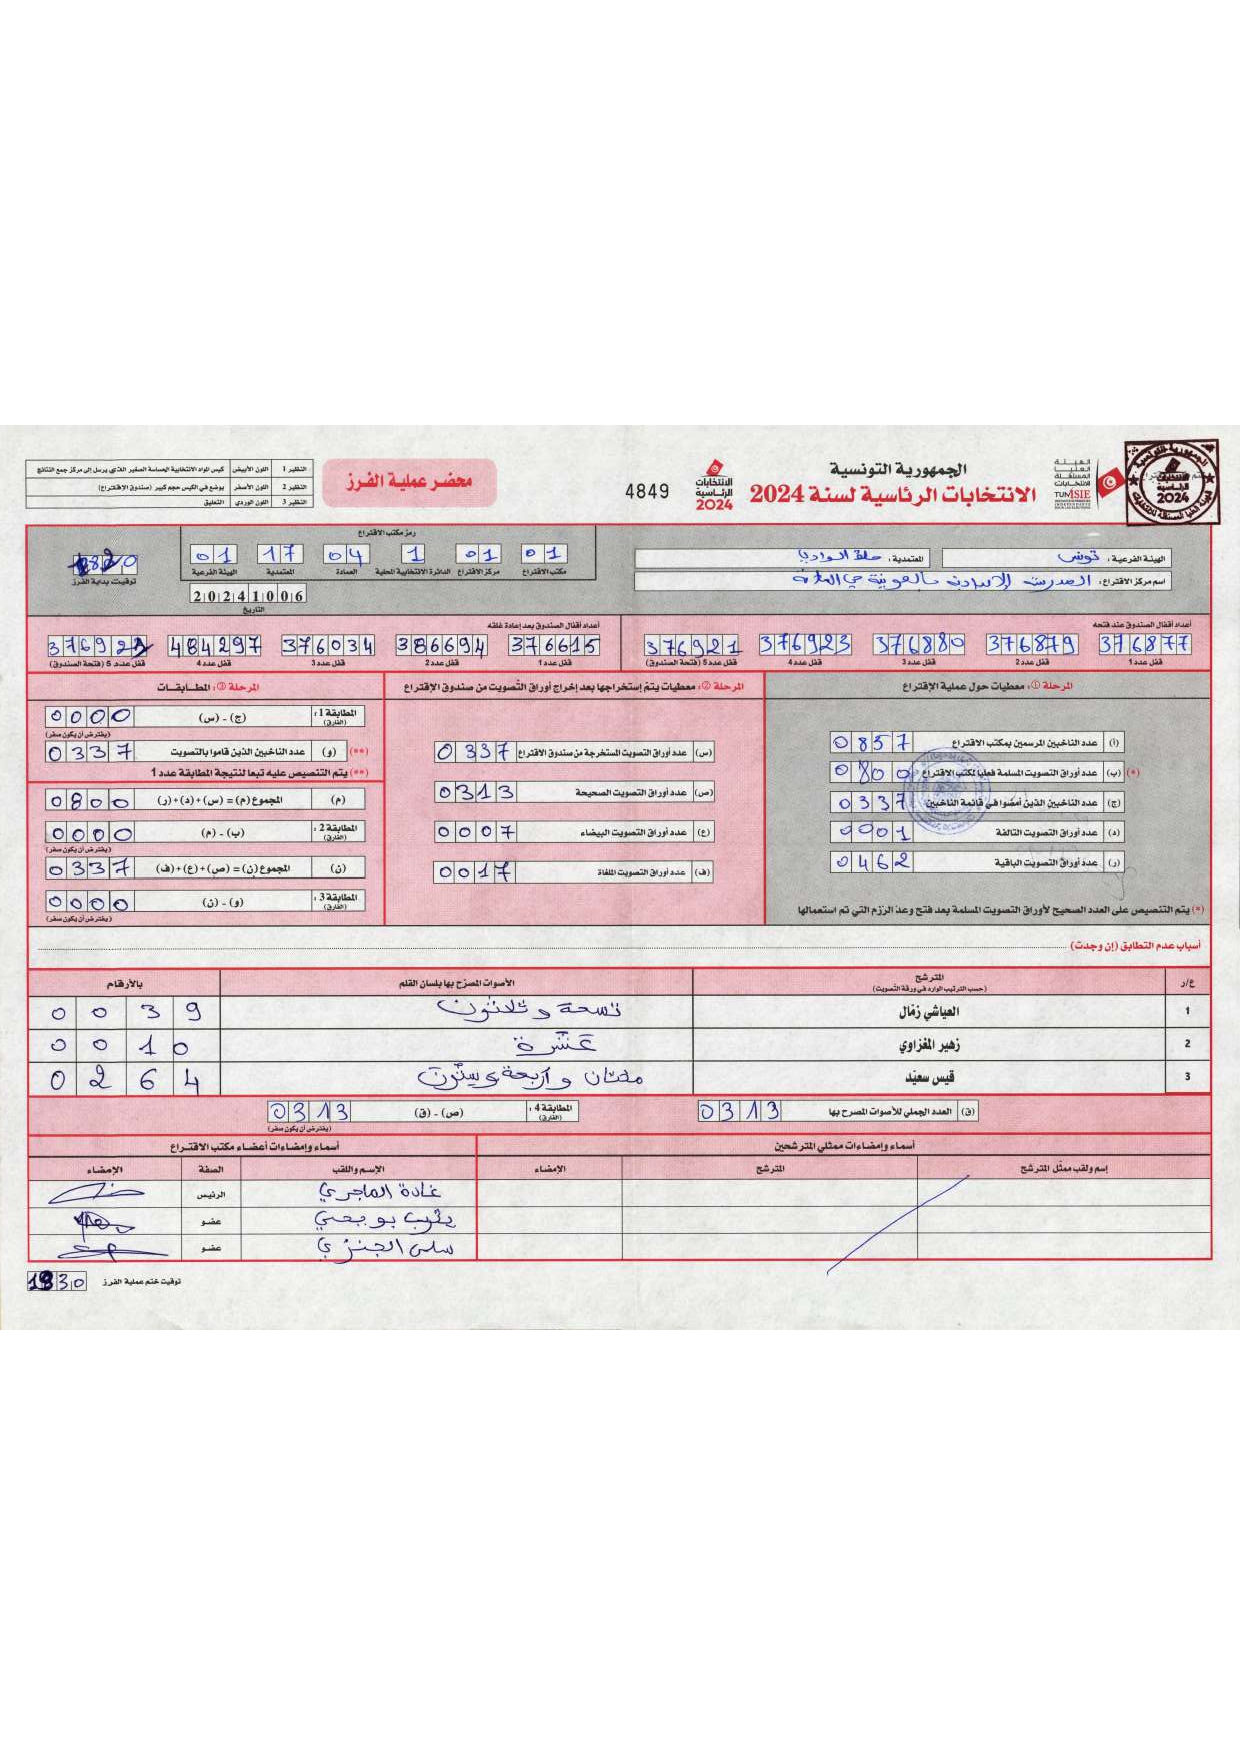 الجمهورية التونسية
الانتخابات الرئاسية لسنة 2024
الهيئة العليا المستقلة للانتخابات
TUNISIE
الانتخابات الرئاسية 2024
4849
محضر عملية الفرز
النظير 1 اللون الأبيض كيس المواد الانتخابية الحساسة الصغير الذي يرسل إلى مركز جمع النتائج
النظير 2 اللون الأصفر يوضع في الكيس حجم كبير (صندوق الاقتراع)
النظير 3 اللون الوردي التعليق
الهيئة الفرعية: تونس
المعتمدية: حلق الوادي
اسم مركز الاقتراع: المدرسة الإعدادية بالعوينة حي
رمز مكتب الاقتراع
01 01 1 04 17 01
مكتب الاقتراع مركز الاقتراع الدائرة الانتخابية المحلية العمادة المعتمدية الهيئة الفرعية
توقيت بداية الفرز
20241006
التاريخ
أعداد أقفال الصندوق عند فتحه
376877 376879 376880 376923 376921
قفل عدد 1 قفل عدد 2 قفل عدد 3 قفل عدد 4 قفل عدد 5 (فتحة الصندوق)
أعداد أقفال الصندوق بعد إعادة غلقه
376615 386694 376034 484297
قفل عدد 1 قفل عدد 2 قفل عدد 3 قفل عدد 4 قفل عدد 5 (فتحة الصندوق)
المرحلة ①: معطيات حول عملية الإقتراع
(أ) عدد الناخبين المرسمين بمكتب الاقتراع 0857
(*) (ب) عدد أوراق التصويت المسلمة فعليا لمكتب الاقتراع 0800
(ج) عدد الناخبين الذين أمضوا في قائمة الناخبين 0337
(د) عدد أوراق التصويت التالفة 0001
(ر) عدد أوراق التصويت الباقية 0462
(*) يتم التنصيص على العدد الصحيح لأوراق التصويت المسلمة بعد فتح وعد الرزم التي تم استعمالها
المرحلة ②: معطيات يتم إستخراجها بعد إخراج أوراق التصويت من صندوق الإقتراع
(س) عدد أوراق التصويت المستخرجة من صندوق الاقتراع 0337
(ص) عدد أوراق التصويت الصحيحة 0313
(ع) عدد أوراق التصويت البيضاء 0007
(ف) عدد أوراق التصويت الملغاة 0017
المرحلة ③: المطابقات
المطابقة 1: (الفارق) (ج) - (س) 0000
(يفترض أن يكون صفر)
(**) (و) عدد الناخبين الذين قاموا بالتصويت 0337
(**) يتم التنصيص عليه تبعا لنتيجة المطابقة عدد 1
(م) المجموع (م) = (س)+(د)+(ر) 0800
المطابقة 2: (الفارق) (ب) - (م) 0000
(يفترض أن يكون صفر)
(ن) المجموع (ن) = (ص)+(ع)+(ف) 0337
المطابقة 3: (الفارق) (و) - (ن) 0000
(يفترض أن يكون صفر)
أسباب عدم التطابق (إن وجدت)
ع/ر المترشح (حسب الترتيب الوارد في ورقة التصويت) الأصوات المصرح بها بلسان القلم بالأرقام
1 العياشي زمّال تسعة و ثلاثون 0039
2 زهير المغزاوي عشرة 0010
3 قيس سعيّد مئتان و أربعة و ستون 0264
(ق) العدد الجملي للأصوات المصرح بها 0313
المطابقة 4: (الفارق) (ص) - (ق) 0313
(يفترض أن يكون صفر)
أسماء وإمضاءات ممثلي المترشحين
إسم ولقب ممثل المترشح المترشح الإمضاء
أسماء وإمضاءات أعضاء مكتب الاقتراع
الإسم واللقب الصفة الإمضاء
غادة الماجري الرئيس
عضو
عضو
توقيت ختم عملية الفرز